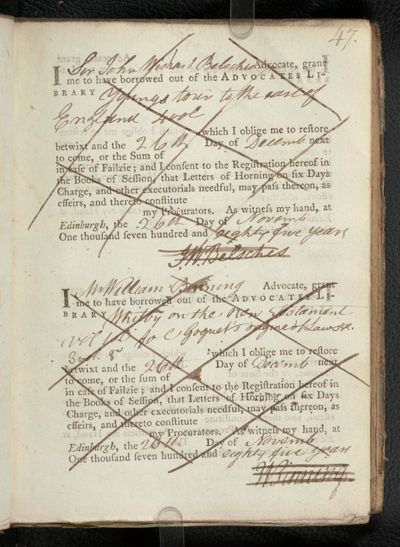 47.
I Sir John Wishart Belsches Advocate, grant
me to have borrowed out of the ADVOCATES LI-
BRARY Youngs tour to the east of
England 
which I oblige me to restore
betwixt and the 26th Day of Decemb next
to come, or the Sum of
in case of Failzie; and I consent to the Registration hereof in
the Books of Session, that Letters of Horning on six Days
Charge, and other executorials needful, may pass thereon, as
effeirs, and thereto constitute
my Procurators. As witness my hand, at
Edinburgh, the 26th Day of Novemb
One thousand seven hundred and eighty five years
J W Belsches
I Mr William Binning Advocate, grant
me to have borrowed out of the ADVOCATES LI-
BRARY Whitby on the New Testament
&
which I oblige me to restore
betwixt and the 26th Day of Decemb next
to come, or the sum of
in case of Failzie; and I consent to the Registration hereof in
the Books of Session, that Letters of Horning on six Days
Charge, and other executorials needful, may pass thereon, as
effeirs, and thereto constitute
my Procurators. As witness my hand, at
Edinburgh, the 26th Day of Novemb
One thousand seven hundred and eighty five years
W Binning